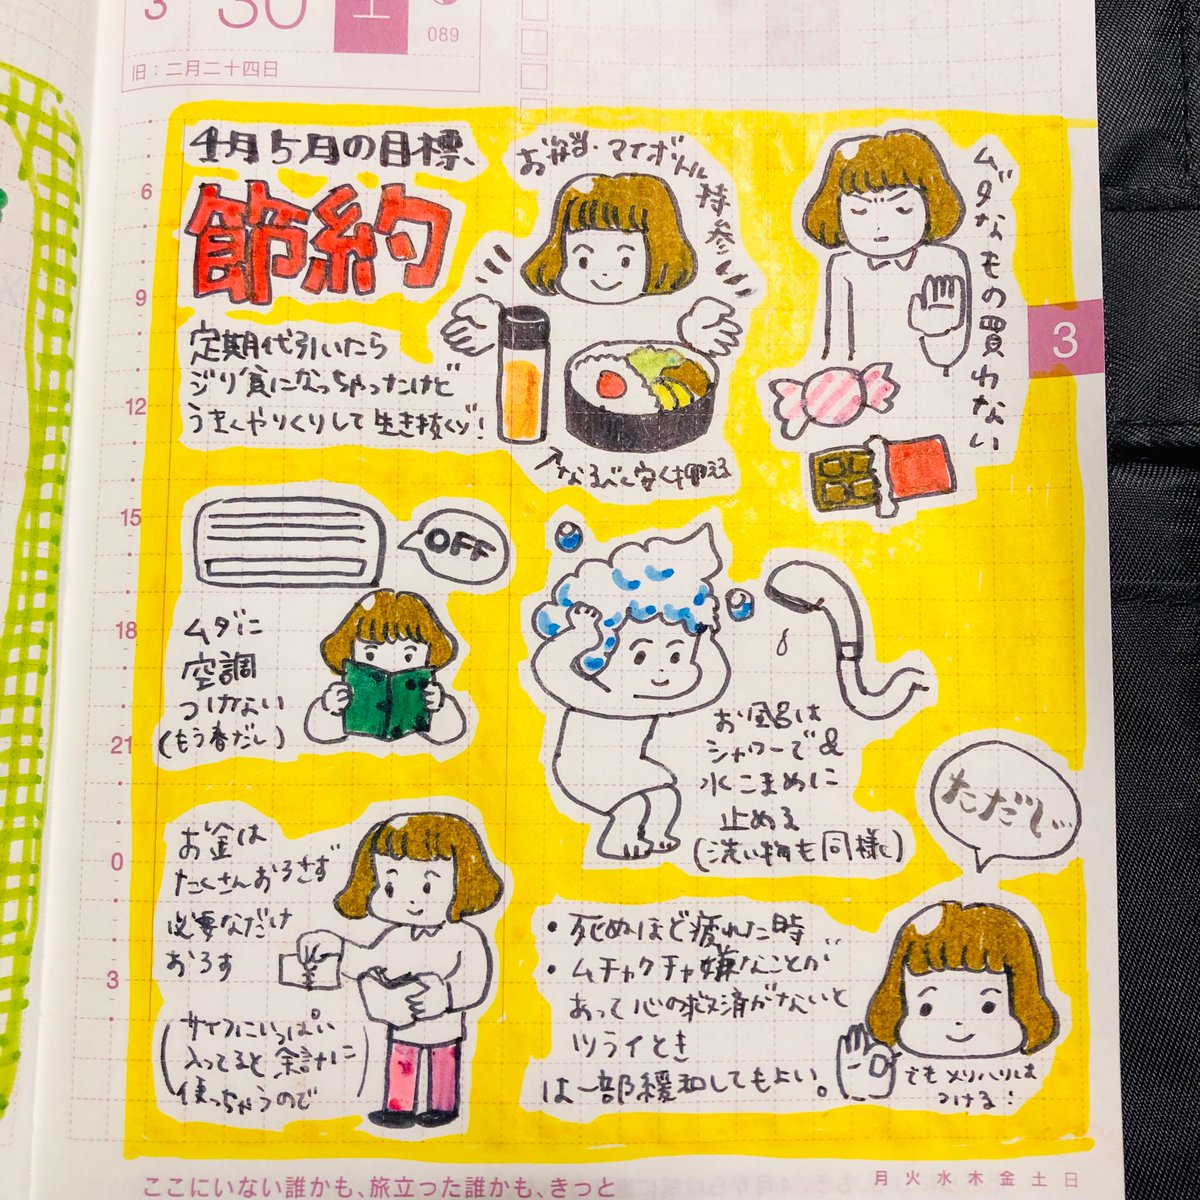 3 30 土
089
旧:二月二十四日
4月5月の目標、
節約
定期代引いたら
ジリ貧になっちゃったけど
うまくやりくりして生き抜くゾ!
お弁当・マイボトル持参
↗なるべく安く抑える
ムダなもの買わない
OFF
ムダに
空調
つけない
(もう春だし)
お風呂は
シャワーで&
水こまめに
止める
(洗い物も同様に)
お金は
たくさんおろさず
必要なだけ
おろす
(サイフにいっぱい
入ってると余計に
使っちゃうので)
ただし…
・死ぬほど疲れた時
・ムチャクチャ嫌なことが
あって心の救済がないと
ツライとき
は一部緩和してもよい。
でもメリハリは
つける!
6
9
12
15
18
21
0
3
3
ここにいない誰かも、旅立った誰かも、きっと
月火水木金土日